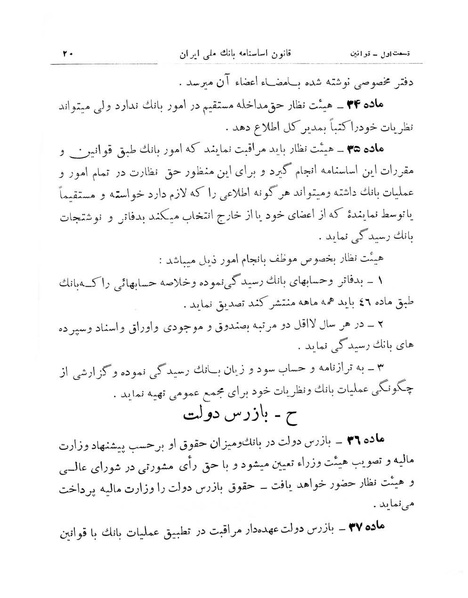 قسمت اول ـ قوانین قانون اساسنامه بانك ملی ایران ۲۰
دفتر مخصوصی نوشته شده بامضاء اعضاء آن میرسد .
ماده ۳۴ ـ هیئت نظار حق مداخله مستقیم در امور بانك ندارد ولی میتواند
نظریات خود را کتباً بمدیر کل اطلاع دهد .
ماده ۳۵ ـ هیئت نظار باید مراقبت نمایند که امور بانك طبق قوانین و
مقررات این اساسنامه انجام گیرد و برای این منظور حق نظارت در تمام امور و
عملیات بانك داشته ومیتواند هر گونه اطلاعی را که لازم دارد خواسته و مستقیماً
یا توسط نمایندهٔ که از اعضای خود یا از خارج انتخاب میکند بدفاتر و نوشتجات
بانك رسیدگی نماید .
هیئت نظار بخصوص موظف بانجام امور ذیل میباشد :
۱ ـ بدفاتر وحسابهای بانك رسیدگی نموده وخلاصه حسابهائی را که بانك
طبق ماده ٤٦ باید همه ماهه منتشر کند تصدیق نماید .
۲ ـ در هر سال لااقل دو مرتبه بصندوق و موجودی واوراق و اسناد وسپرده
های بانك رسیدگی نماید .
۳ ـ به ترازنامه و حساب سود و زیان بانك رسیدگی نموده وگزارشی از
چگونگی عملیات بانك ونظریات خود برای مجمع عمومی تهیه نماید .
ح ـ بازرس دولت
ماده ۳۶ ـ بازرس دولت در بانك ومیزان حقوق او برحسب پیشنهاد وزارت
مالیه و تصویب هیئت وزراء تعیین میشود و با حق رأی مشورتی در شورای عالی
و هیئت نظار حضور خواهد یافت ـ حقوق بازرس دولت را وزارت مالیه پرداخت
می‌نماید .
ماده ۳۷ ـ بازرس دولت عهده‌دار مراقبت در تطبیق عملیات بانك با قوانین